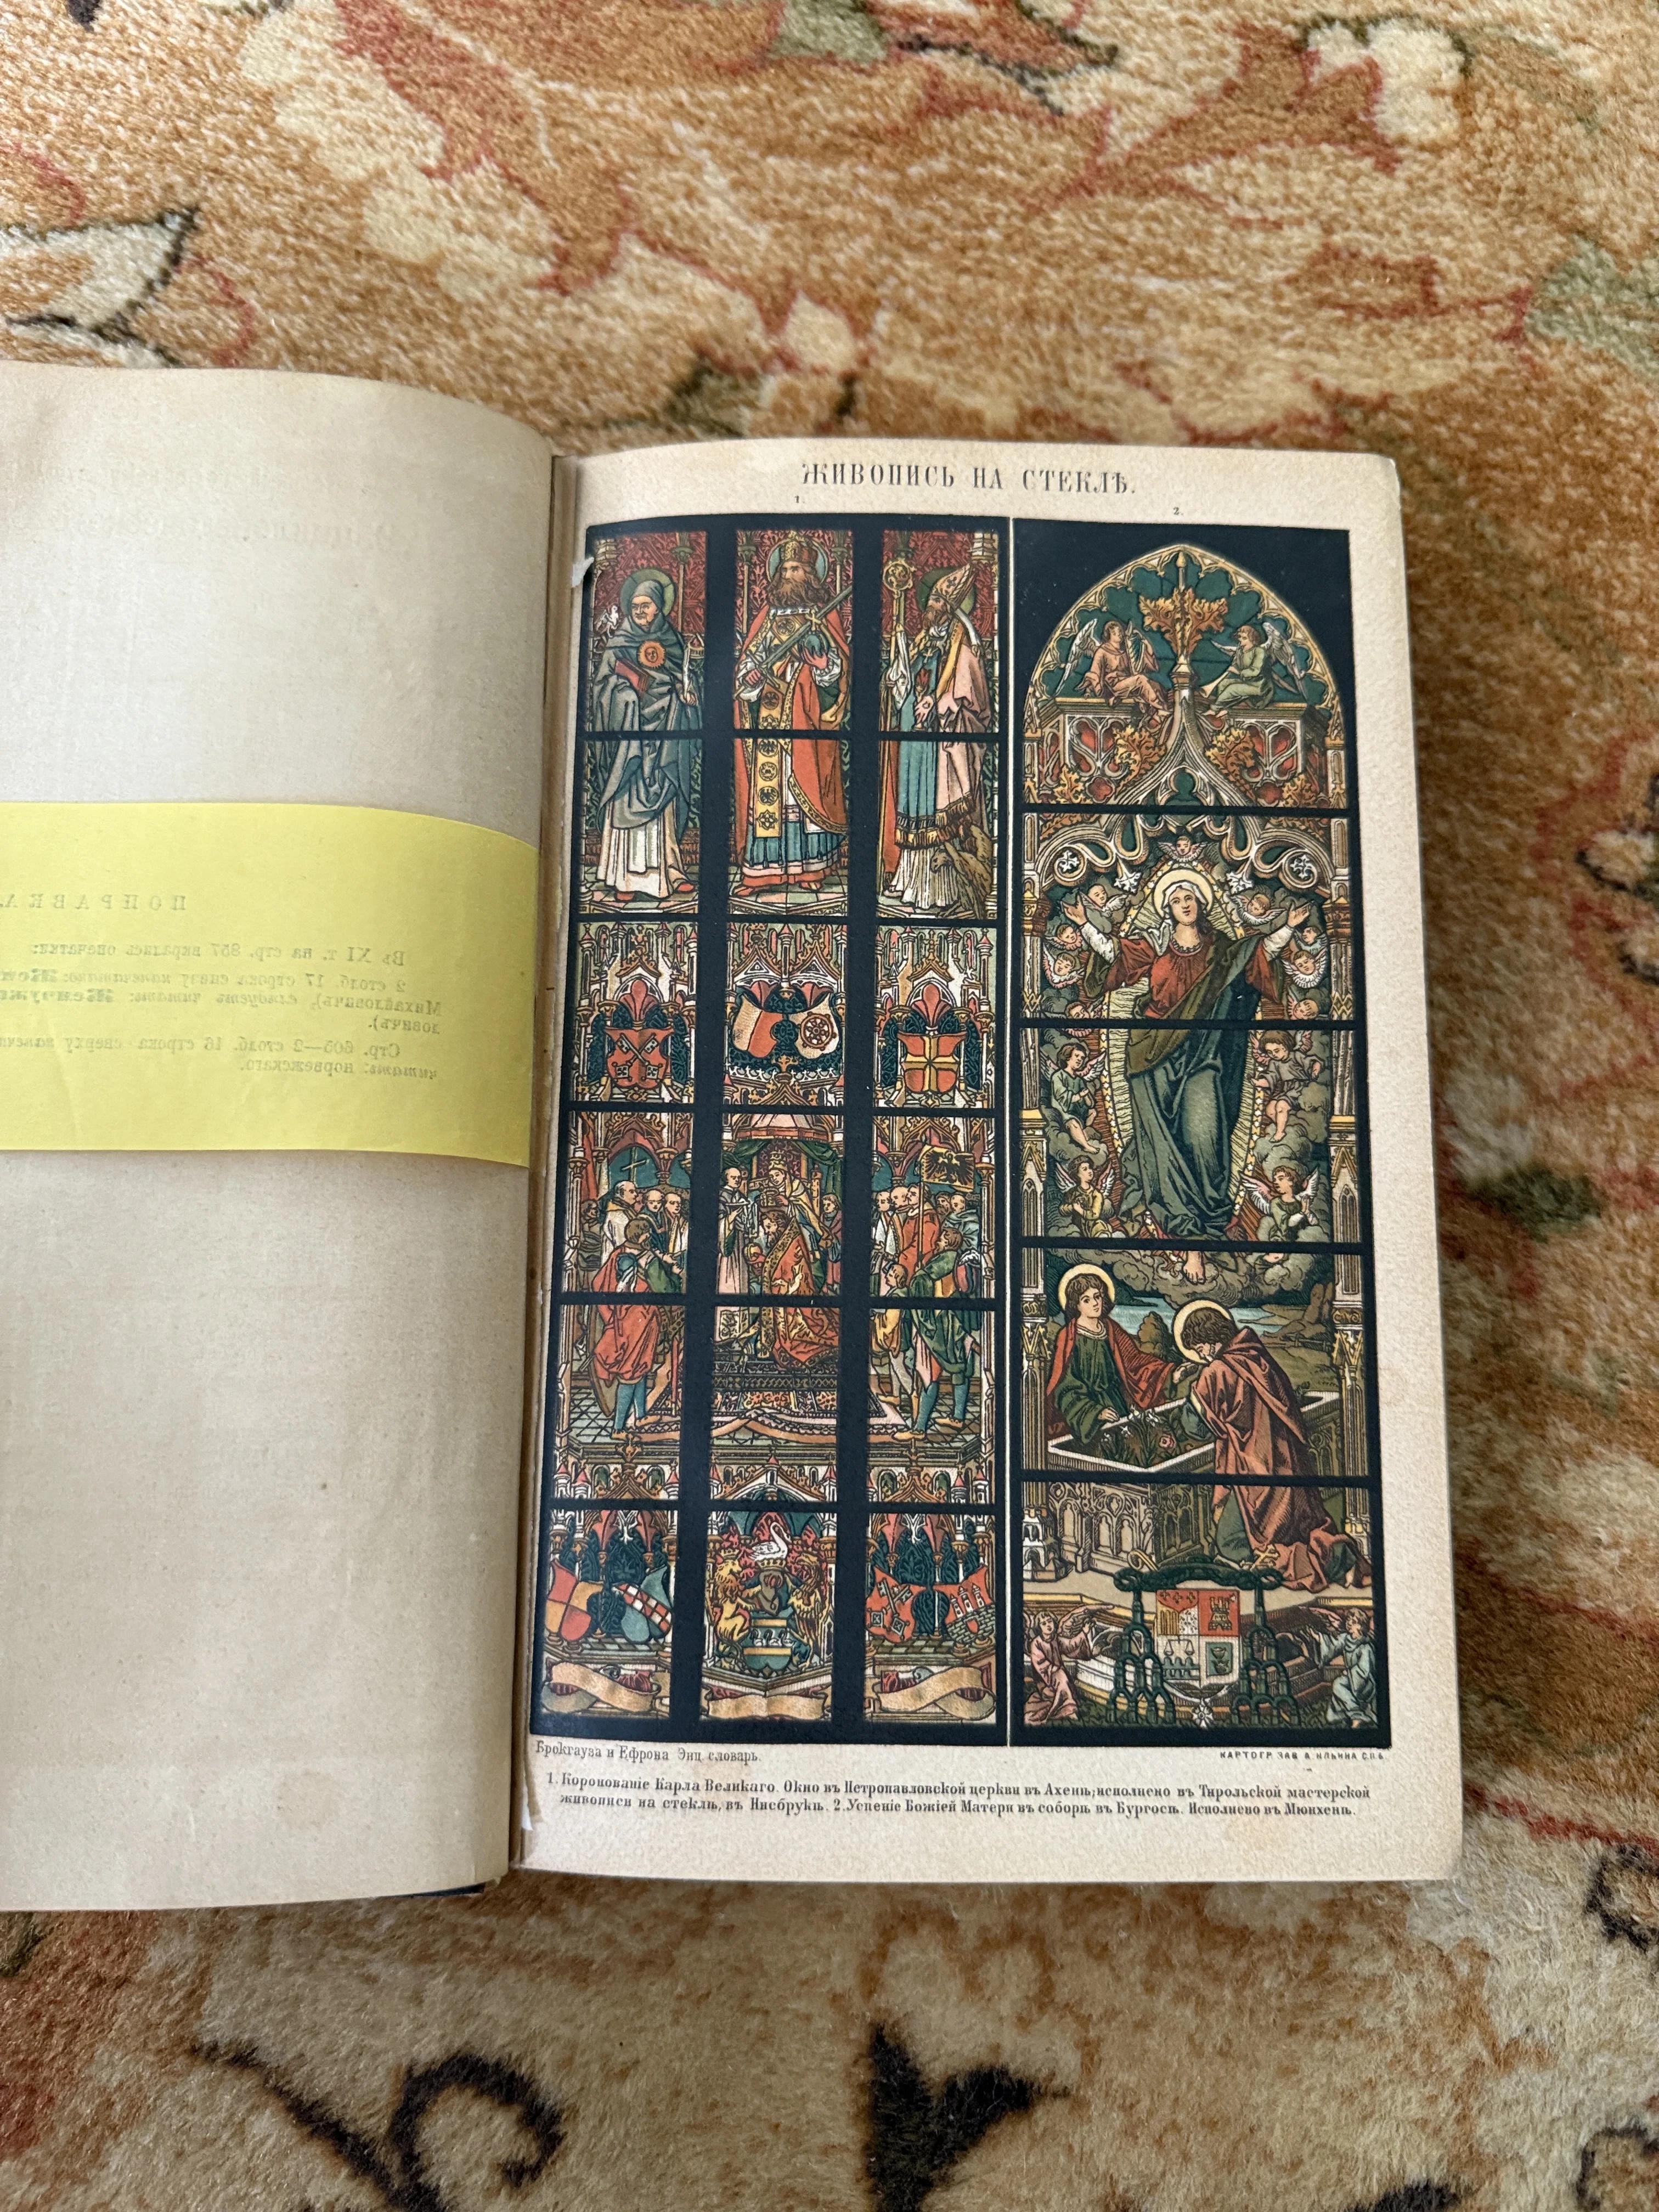 ПОПРАВКА.
Въ XI т. на стр. 857 вкралась опечатка:
2 столб. 17 строка снизу напечатано:
Михайловичъ), слѣдуетъ читать:
ловичъ).
Стр. 605—2 столб. 16 строка сверху
читать: норвежскаго.
ЖИВОПИСЬ НА СТЕКЛѢ.
1.
2.
Брокгауза и Ефрона Энц. словарь.
КАРТОГР. ЗАВ. А. ИЛЬИНА С.П.Б.
1. Коронованіе Карла Великаго. Окно въ Петропавловской церкви въ Ахенѣ; исполнено въ Тирольской мастерской
живописи на стеклѣ, въ Инсбрукѣ. 2. Успеніе Божіей Матери въ соборѣ въ Бургосѣ. Исполнено въ Мюнхенѣ.